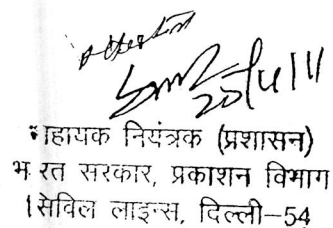 Attested
20/4/11
सहायक नियंत्रक (प्रशासन)
भारत सरकार, प्रकाशन विभाग
सिविल लाइन्स, दिल्ली-54